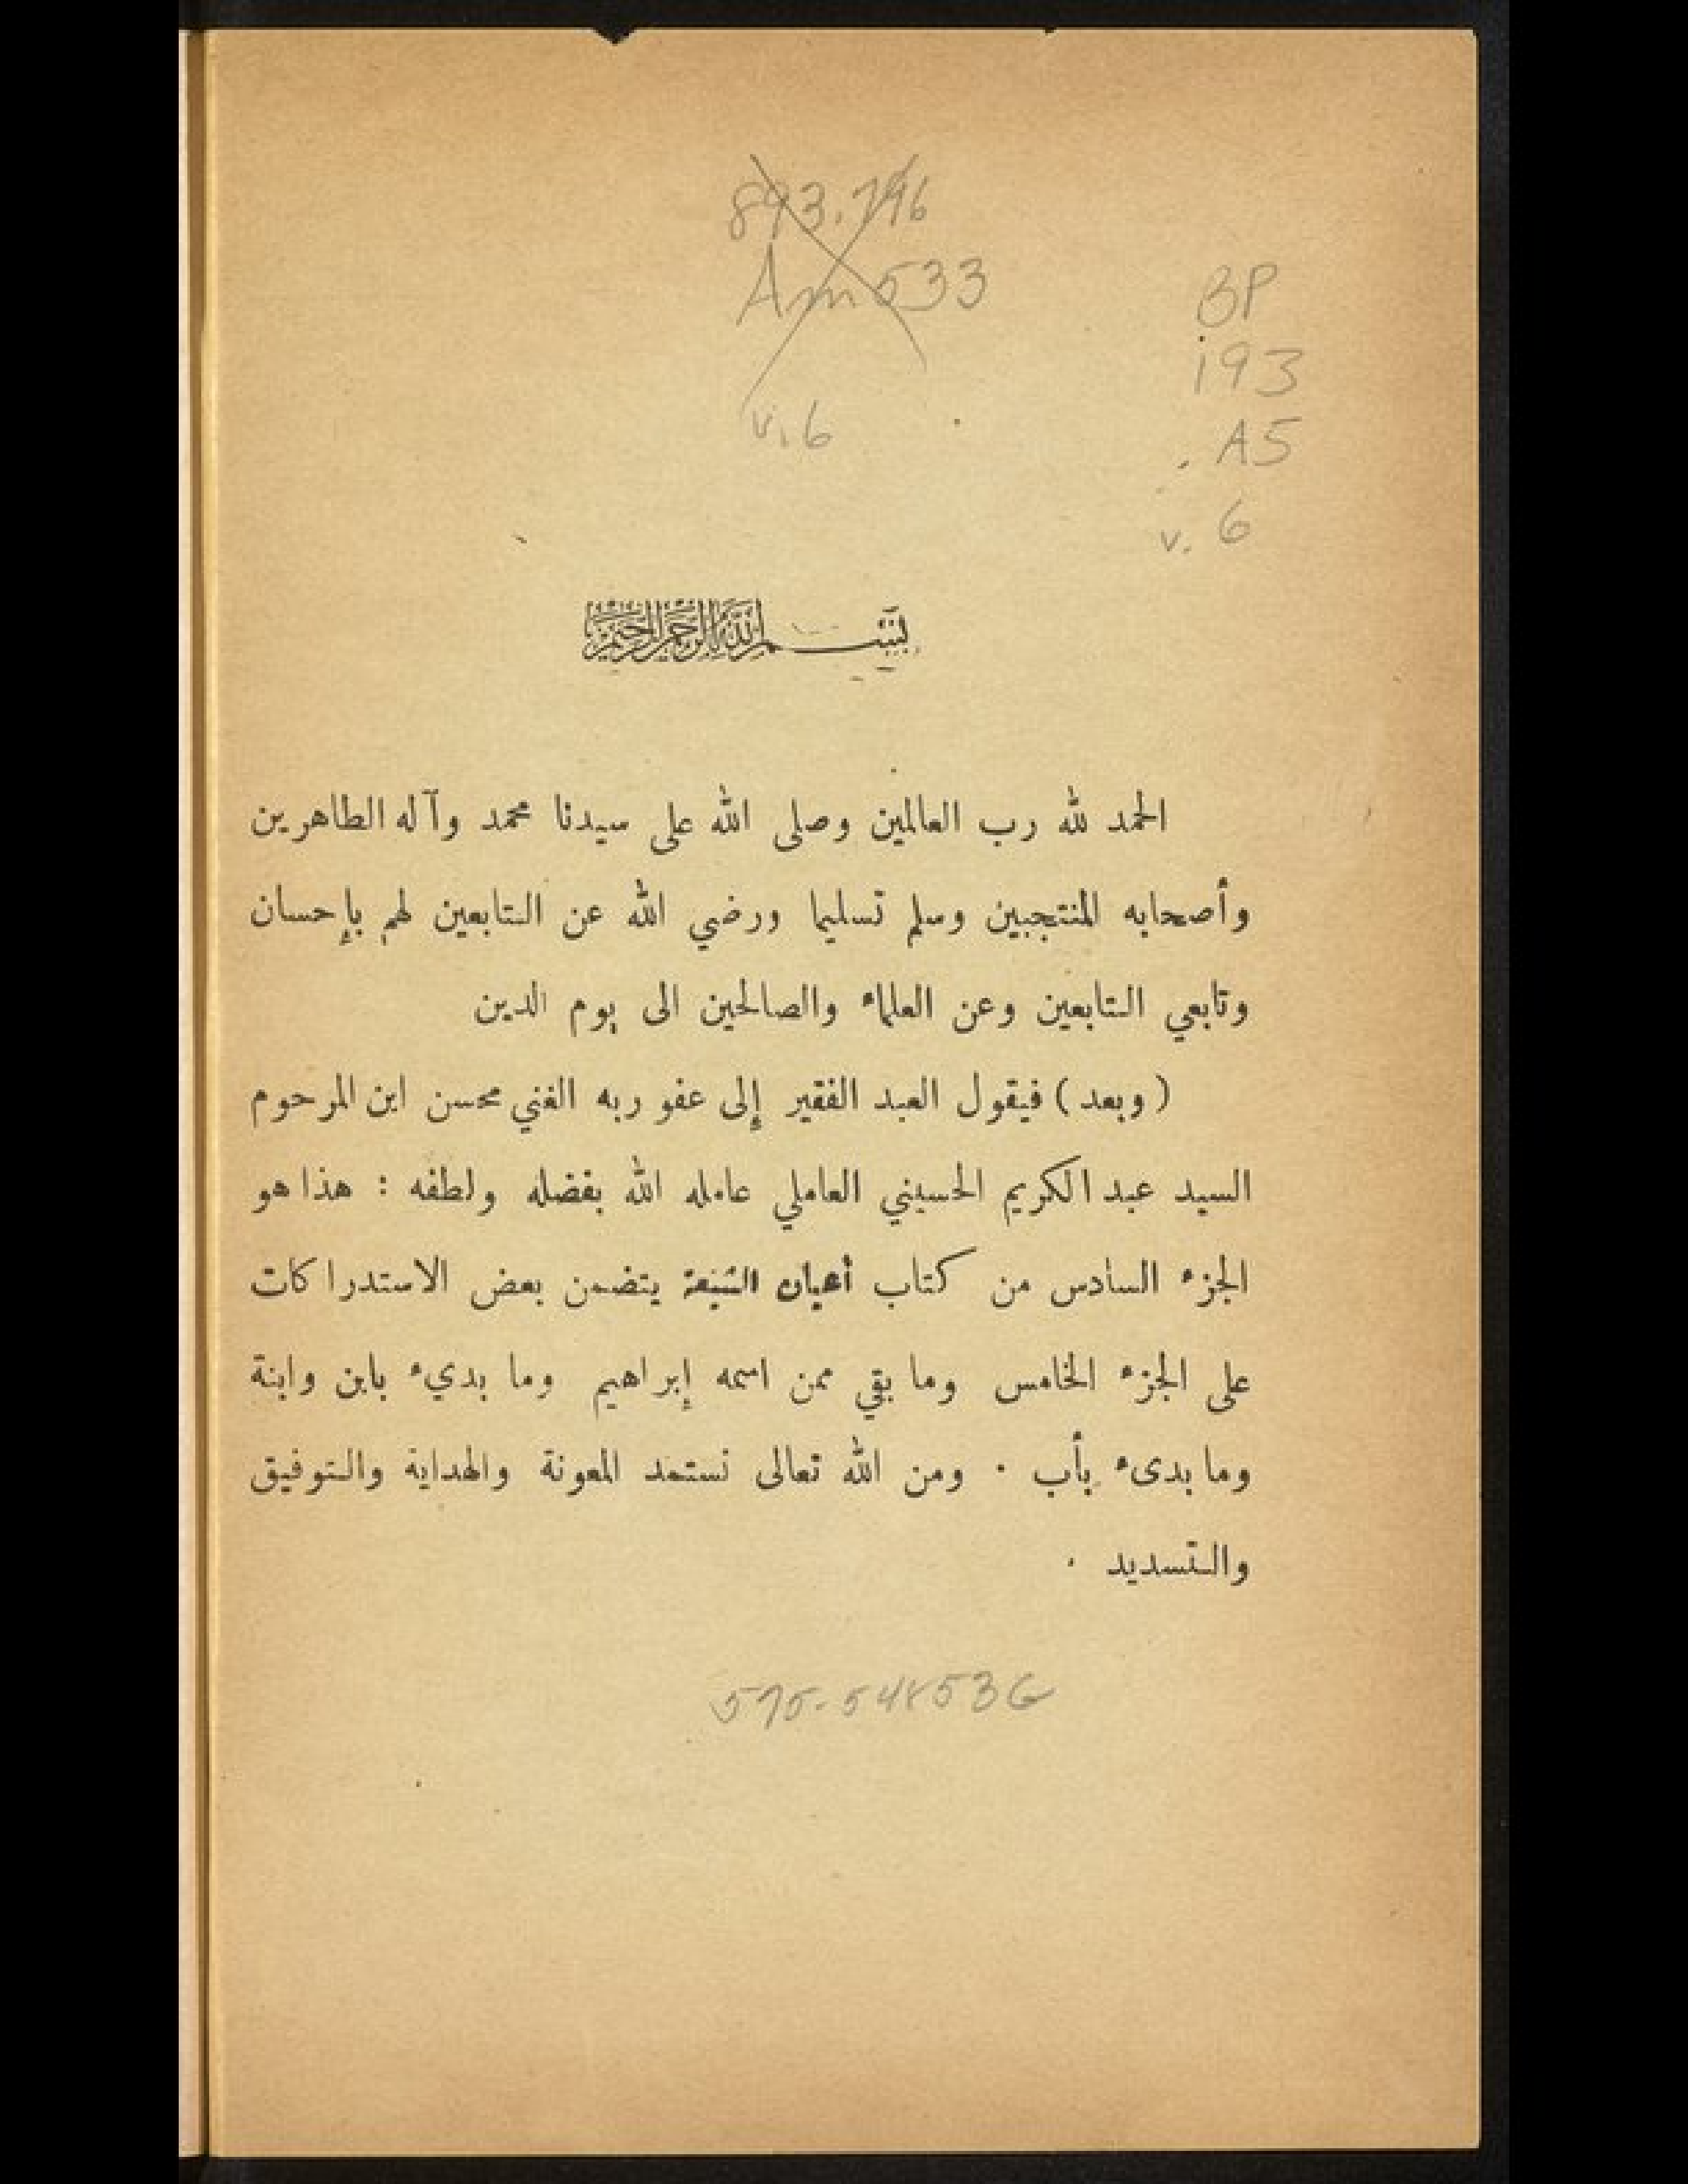 893.796
Am533
v.6
BP
193
.A5
v. 6
بسم الله الرحمن الرحيم
الحمد لله رب العالمين وصلى الله على سيدنا محمد وآله الطاهرين
وأصحابه المنتجبين وسلم تسليما ورضي الله عن التابعين لهم بإحسان
وتابعي التابعين وعن العلماء والصالحين الى يوم الدين
( وبعد ) فيقول العبد الفقير إلى عفو ربه الغني محسن ابن المرحوم
السيد عبد الكريم الحسيني العاملي عامله الله بفضله ولطفه : هذا هو
الجزء السادس من كتاب أعيان الشيعة يتضمن بعض الاستدراكات
على الجزء الخامس وما بقي ممن اسمه إبراهيم وما بديء بابن وابنة
وما بدىء بأب . ومن الله تعالى نستمد المعونة والهداية والتوفيق
والتسديد .